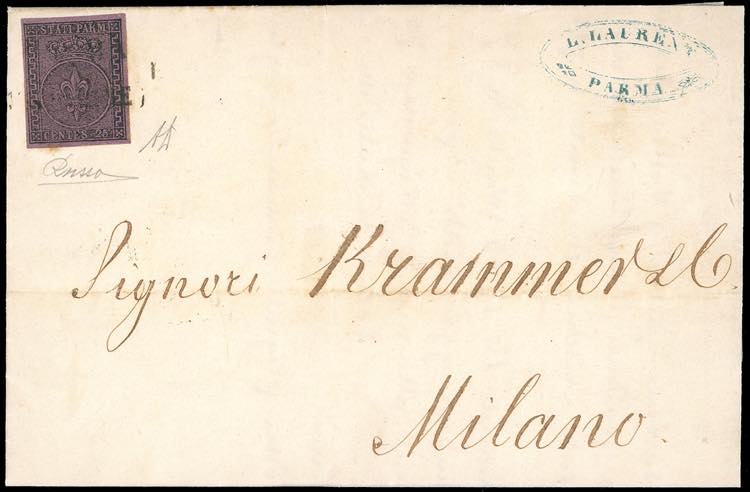 STATI PARM.
CENTES. 25
L. LAUREN
PARMA
Signori Krammer & C.
Milano.